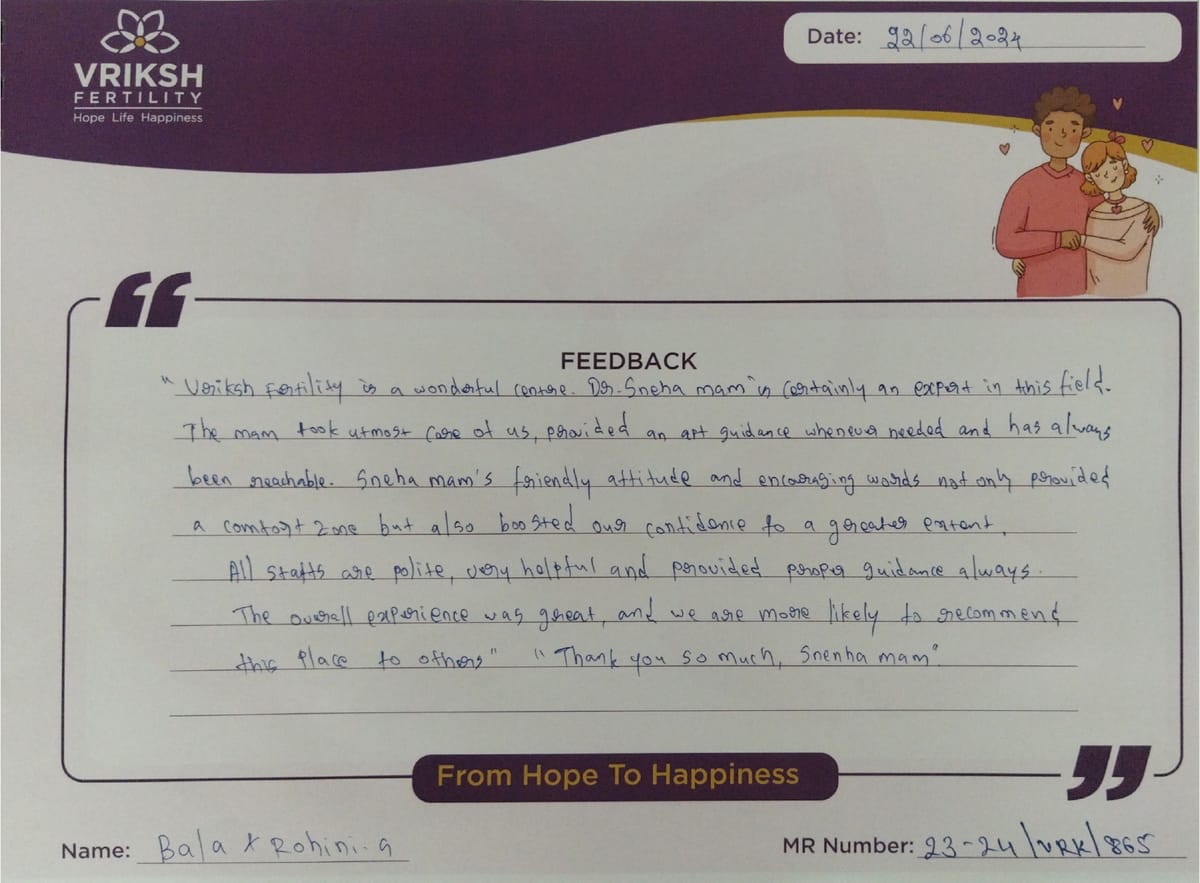 VRIKSH
FERTILITY
Hope Life Happiness
Date: 22/06/2024
FEEDBACK
" Vriksh Fertility is a wonderful centre. Dr. Sneha mam is certainly an expert in this field.
The mam took utmost care of us, provided an apt guidance whenever needed and has always
been reachable. Sneha mam's friendly attitude and encouraging words not only provided
a comfort zone but also boosted our confidence to a greater extent.
All staffs are polite, very helpful and provided proper guidance always.
The overall experience was great, and we are more likely to recommend
this place to others" " Thank you so much, Snenha mam"
From Hope To Happiness
Name: Bala & Rohini. G
MR Number: 23-24/VRK/865